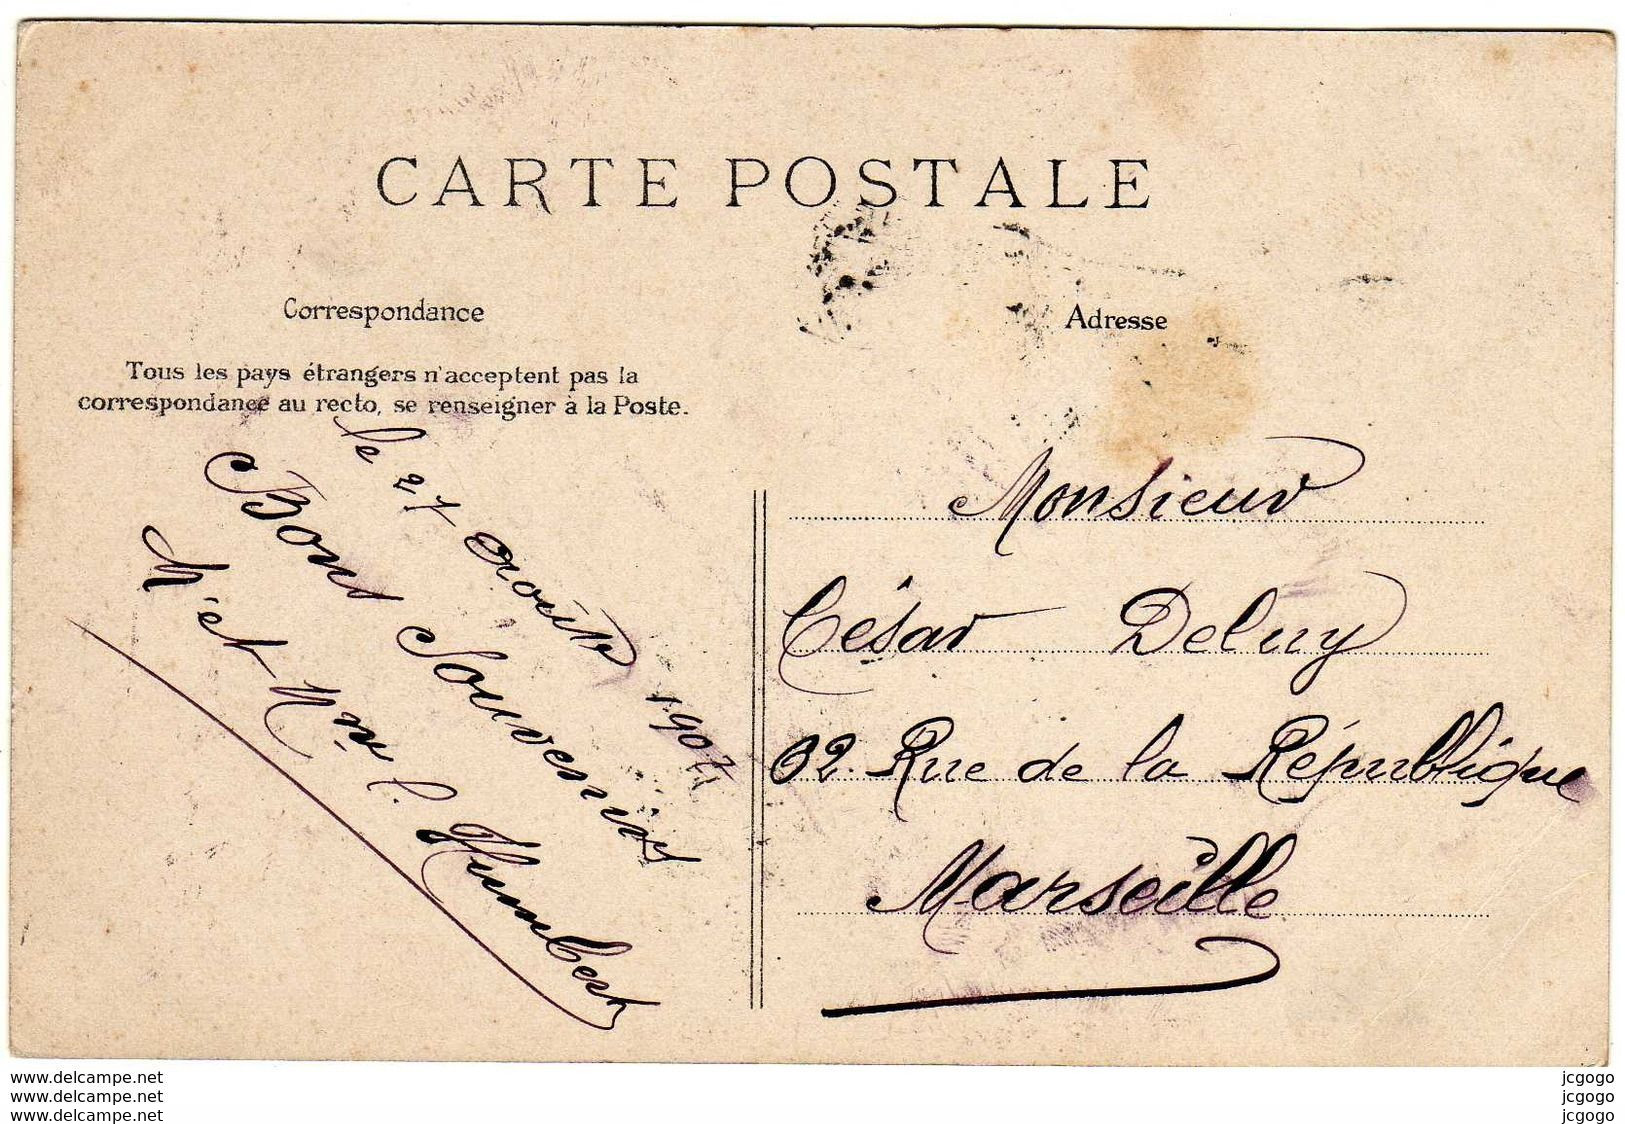 CARTE POSTALE
Correspondance
Tous les pays étrangers n'acceptent pas la
correspondance au recto, se renseigner à la Poste.
le 27 Août 1904
Bons Souvenirs
M. et Mme C. Humbert
Adresse
Monsieur
César Deluy
62. Rue de la République
Marseille
www.delcampe.net
www.delcampe.net
www.delcampe.net
jcgogo
jcgogo
jcgogo